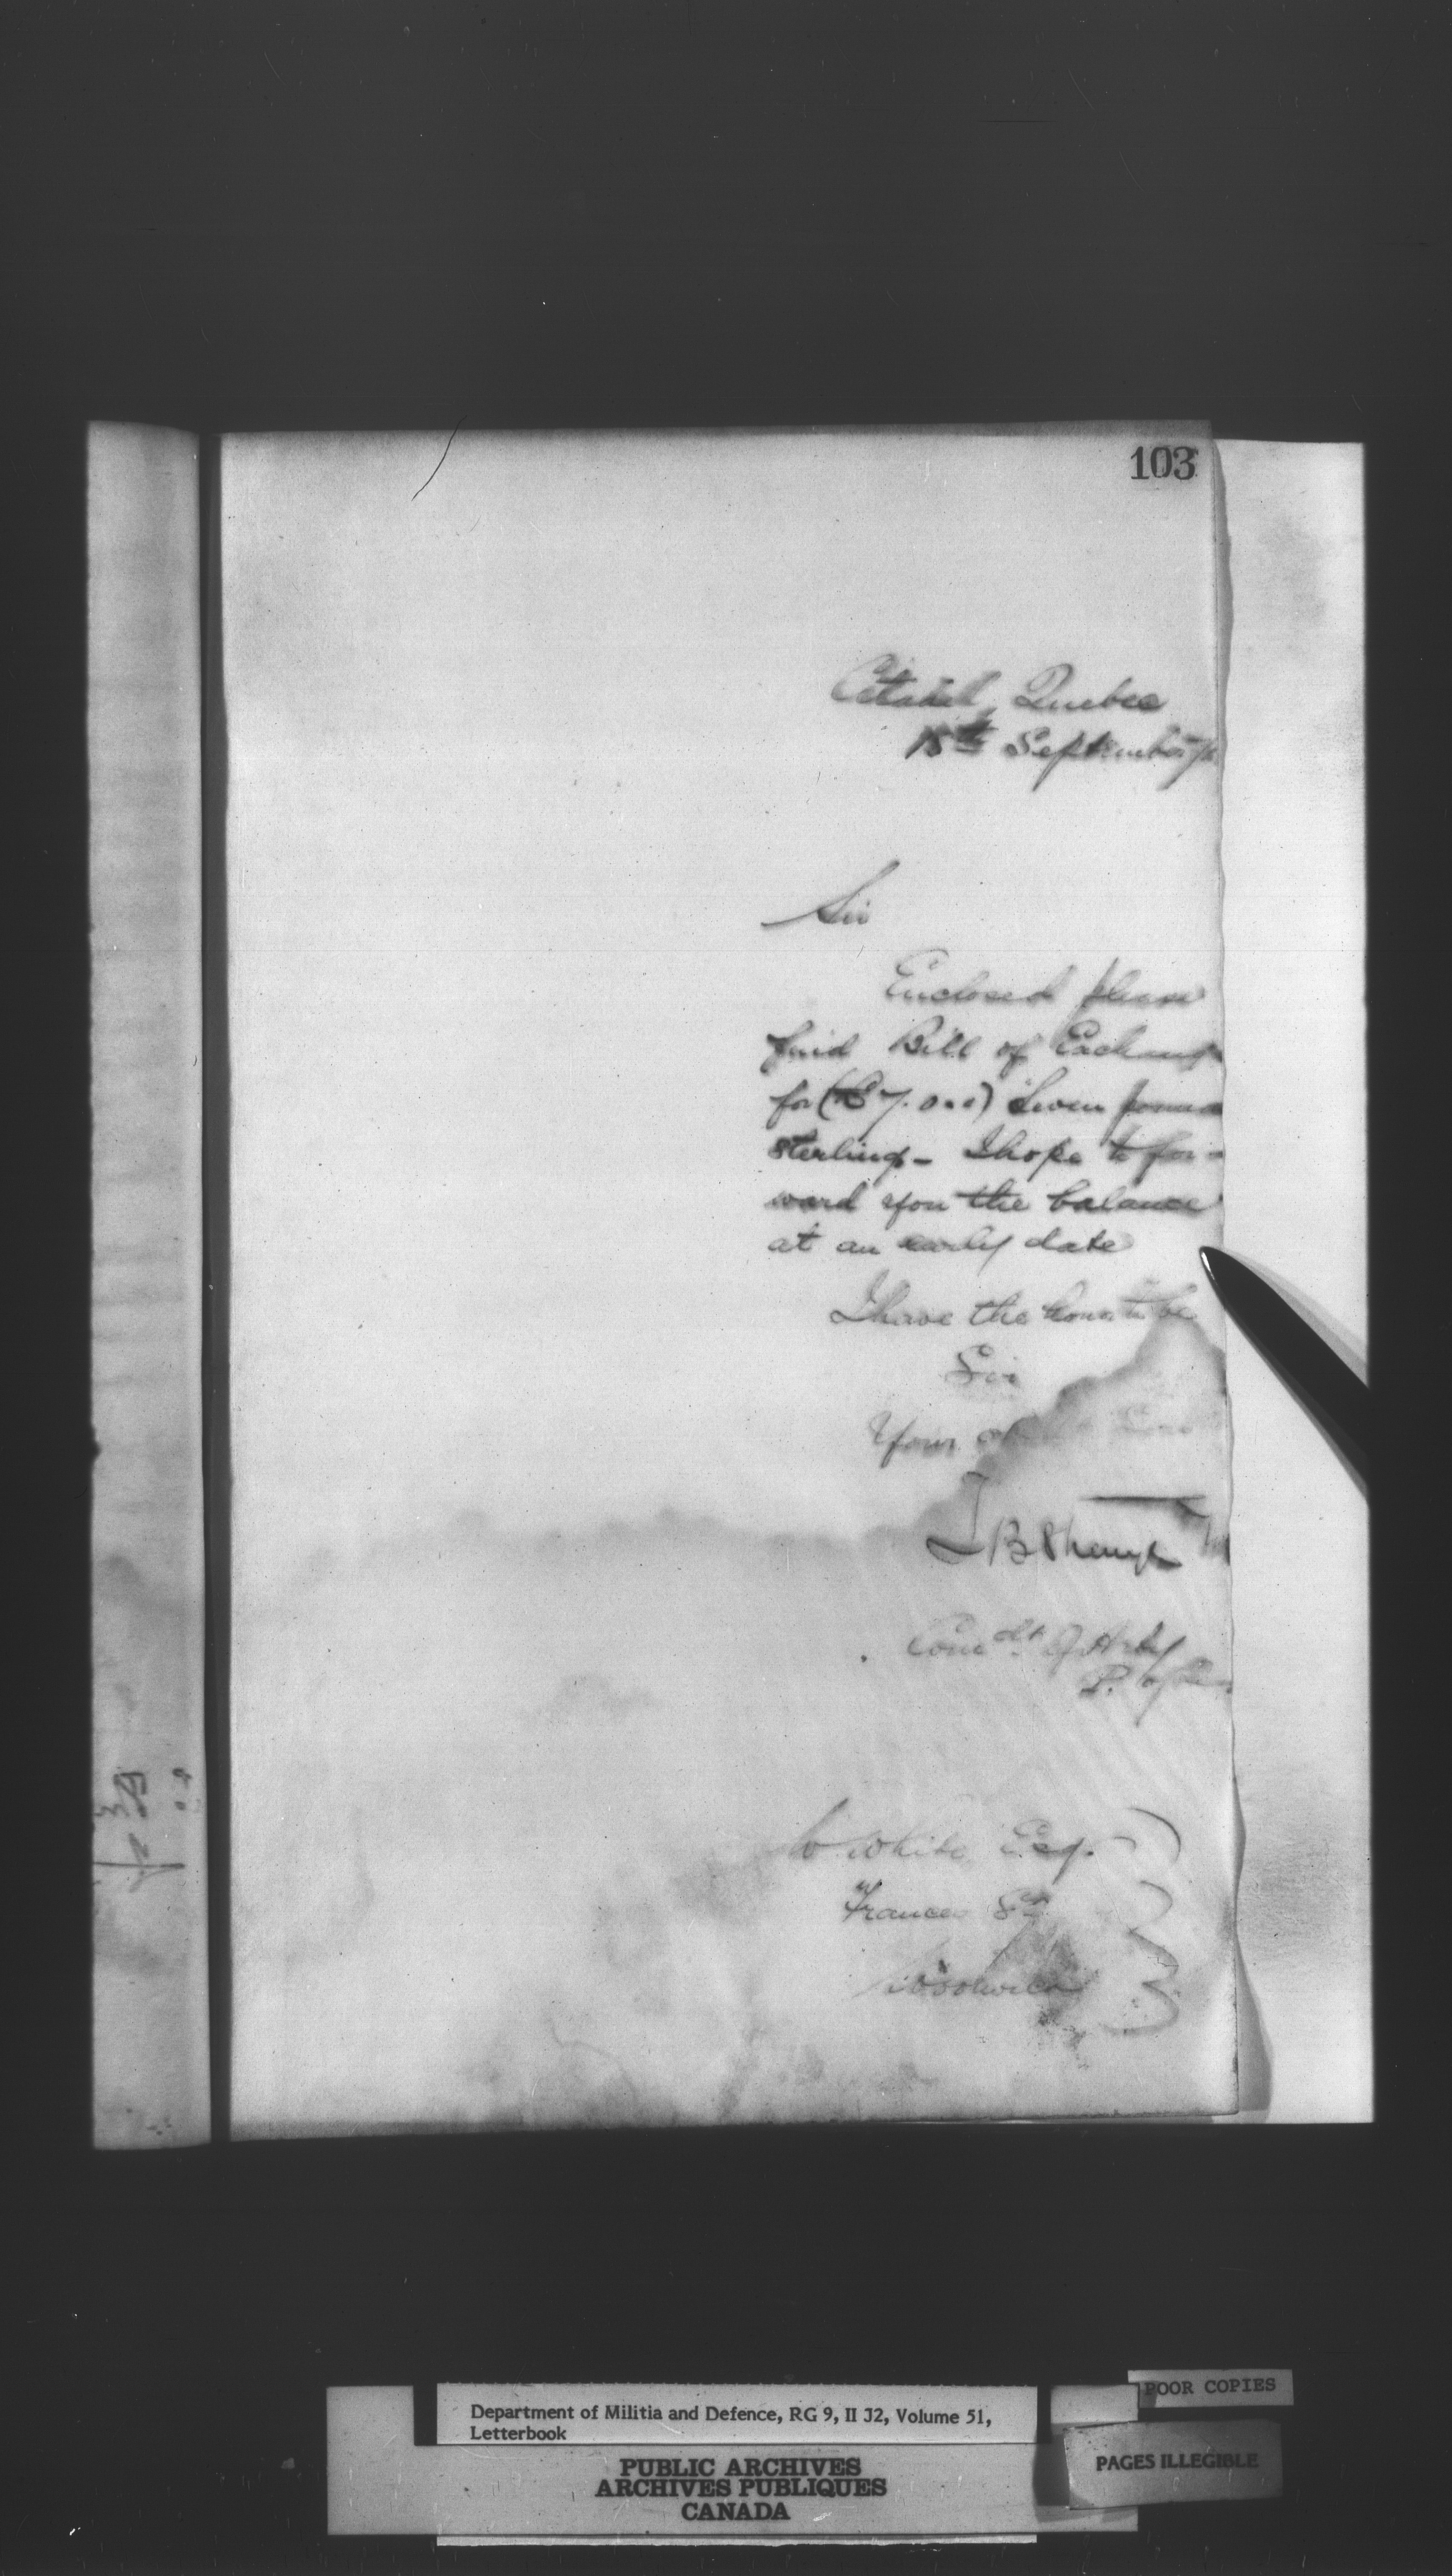 103
Citadel, Quebec
18th September
Sir
Enclosed please
find Bill of Exchang
for (£7.0.0) Seven
sterling - I hope to for-
ward you the balance
at an early date
I have the honor to be
Sir
Your
T B Strange
Comdt
W White Esq.
Frances St
Woolwich
Department of Militia and Defence, RG 9, II J2, Volume 51,
Letterbook
PUBLIC ARCHIVES
ARCHIVES PUBLIQUES
CANADA
POOR COPIES
PAGES ILLEGIBLE